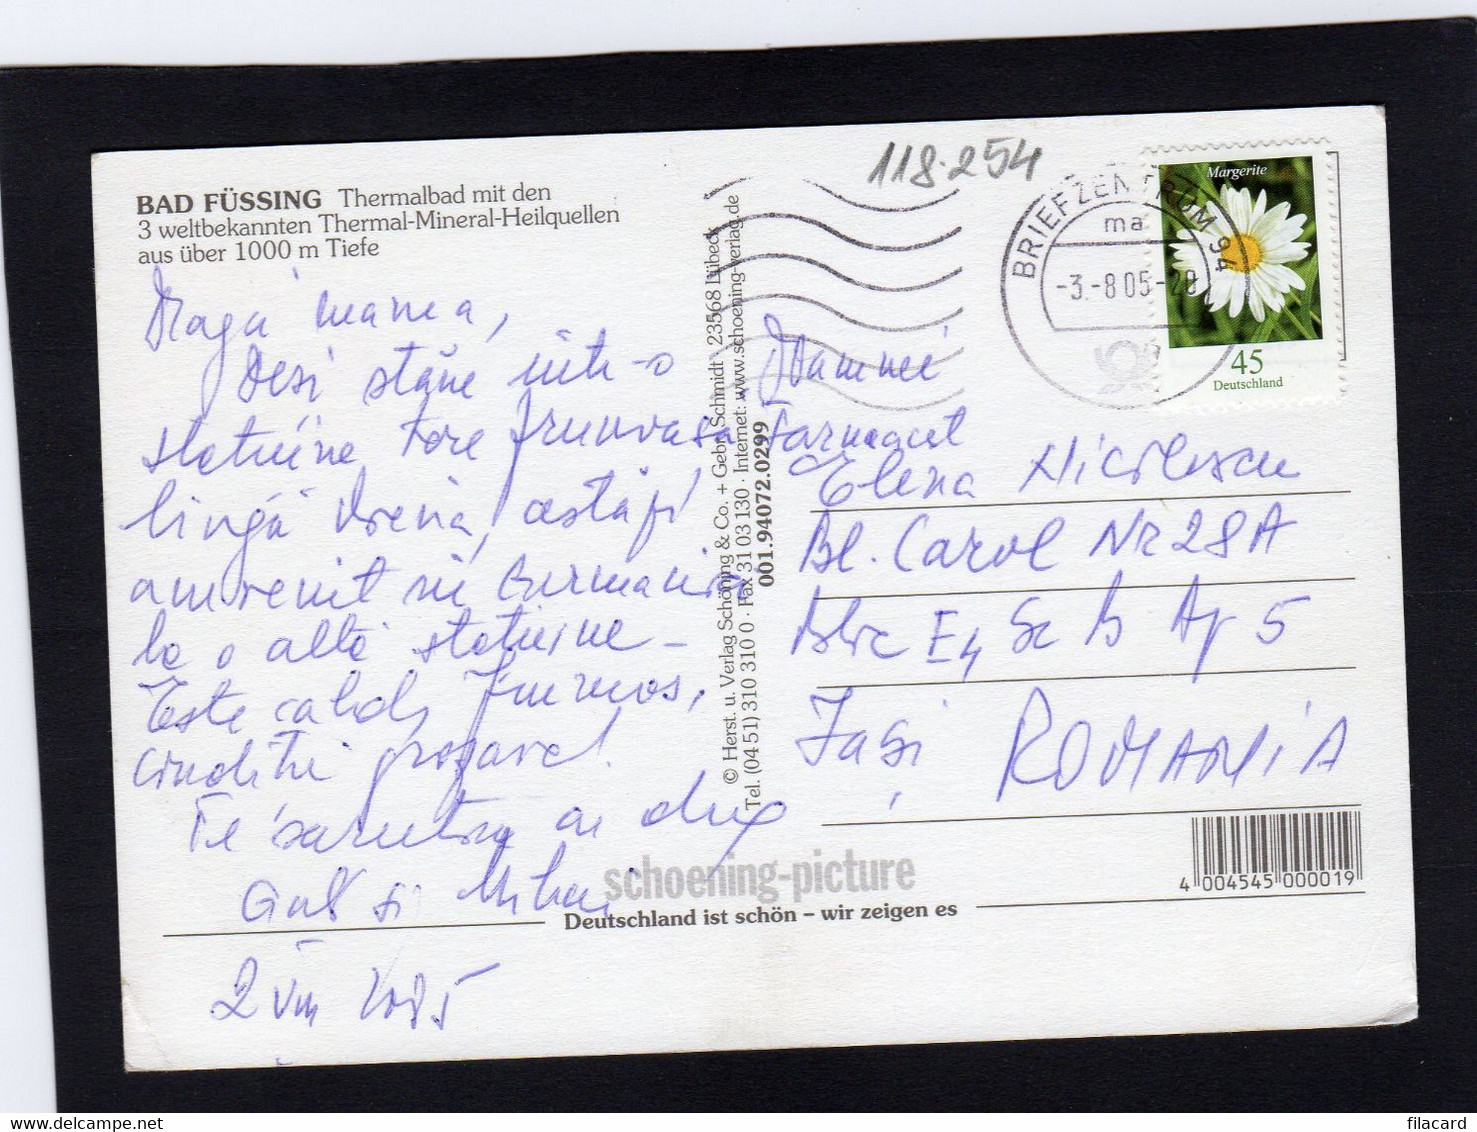 118.254
BAD FÜSSING Thermalbad mit den
3 weltbekannten Thermal-Mineral-Heilquellen
aus über 1000 m Tiefe
Dragă mama,
Deși stăm într-o
stațiune
lîngă Viena, astăzi
am venit în Germania
la o altă stațiune -
Este cald, frumos,
condiții
Te sărutăm cu drag
și Mihai
2 VIII 2005
© Herst. u. Verlag Schöning & Co. + Gebr. Schmidt · 23568 Lübeck
Tel. (04 51) 310 310 0 · Fax 31 03 130 · Internet: www.schoening-verlag.de
001.94072.0299
BRIEFZENTRUM 94
ma
-3.-8.05-20
Margerite
45
Deutschland
Doamnei
Farmacist
Elena Nicolescu
Bl. Carol Nr 28A
Bloc E4 Sc B Ap 5
Iași ROMANIA
schoening-picture
Deutschland ist schön – wir zeigen es
4 004545 000019
Delcampe.net
filacard